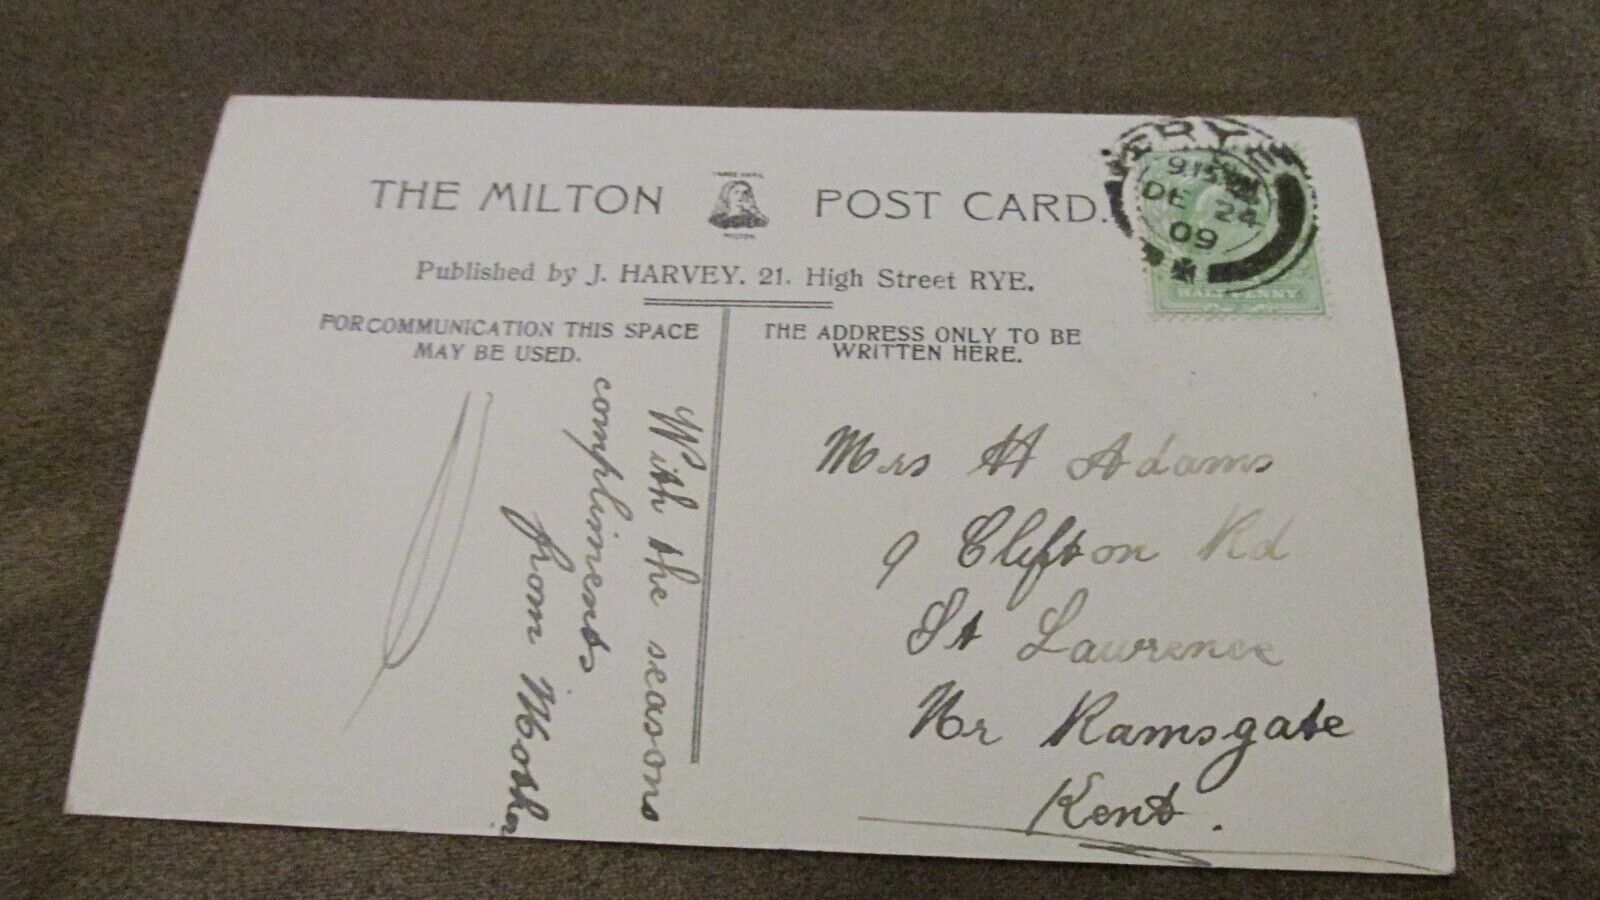 THE MILTON POST CARD.
TRADE MARK
MILTON
Published by J. HARVEY. 21. High Street RYE.
FOR COMMUNICATION THIS SPACE
MAY BE USED.
THE ADDRESS ONLY TO BE
WRITTEN HERE.
RYE
9.15
DE 24
09
HALFPENNY
With the seasons
compliments
from Mother
Mrs H Adams
9 Clifton Rd
St Lawrence
Nr Ramsgate
Kent.